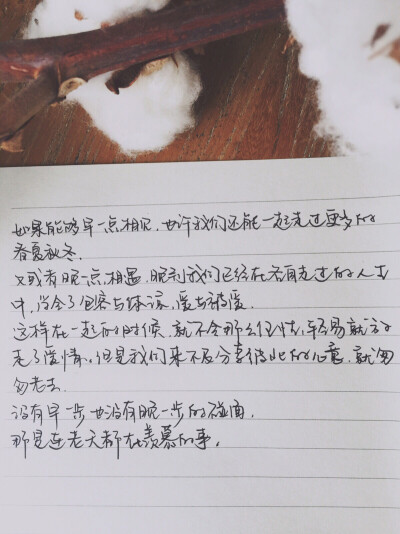 如果能够早一点相见,也许我们还能一起走过更多的
春夏秋冬.
又或者晚一点相遇,晚到我们已经在各自走过的人生
中,学会了包容与体谅,爱与被爱.
这样在一起的时候,就不会那么任性,轻易就分
走了爱情.但是我们来不及分享彼此的心意,就匆
匆老去.
没有早一步也没有晚一步的碰面,
那是连老天都在羡慕的事.